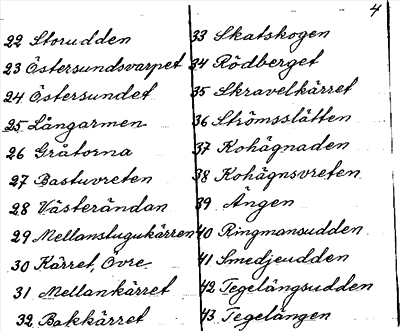 4
22 Storudden
23 Östersundsvarpet
24 Östersundet
25 Långarmen
26 Gråtorna
27 Bastuvreten
28 Västerändan
29 Mellanstugukärren
30 Kärret, Övre
31 Mellankärret
32 Bakkärret
33 Skatskogen
34 Rödberget
35 Skravelkärret
36 Strömsslätten
37 Kohägnaden
38 Kohägnsvreten
39 Ängen
40 Ringmansudden
41 Smedjeudden
42 Tegelängsudden
43 Tegelängen